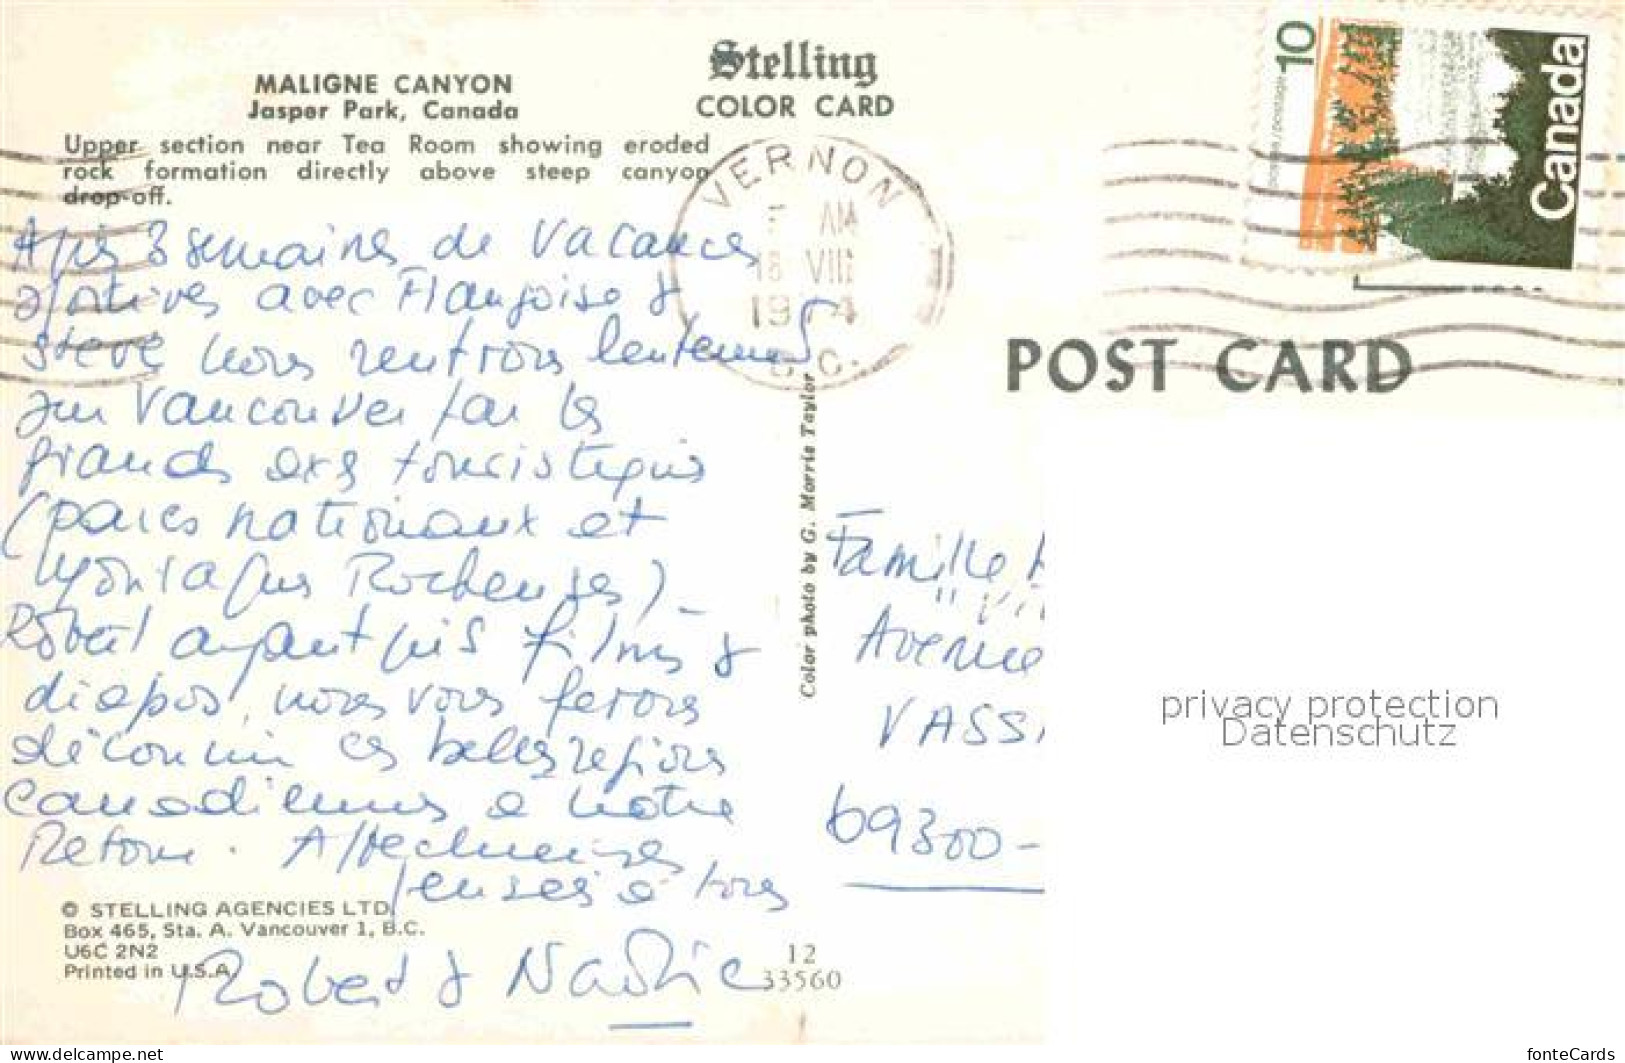 MALIGNE CANYON
Jasper Park, Canada
Upper section near Tea Room showing eroded
rock formation directly above steep canyon
drop-off.
Stelling
COLOR CARD
VERNON
AM
18 VIII
19 4
B.C.
10
postes/postage
Canada
POST CARD
Après 3 semaines de vacances
sportives avec Françoise &
Steve nous rentrons lentement
sur Vancouver par les
grands axes touristiques
(parcs nationaux et
Montagnes Rocheuses).
Robert ayant pris films &
diapos, nous vous ferons
découvrir ces belles régions
canadiennes à notre
Retour. Affectueuses
pensées à tous
Robert & Nadie
Color photo by G. Morris Taylor
Famille
Avenue
VASS
69300-
privacy protection
Datenschutz
© STELLING AGENCIES LTD.
Box 465, Sta. A. Vancouver 1, B.C.
U6C 2N2
Printed in U.S.A.
12
33560
www.delcampe.net
fonteCards